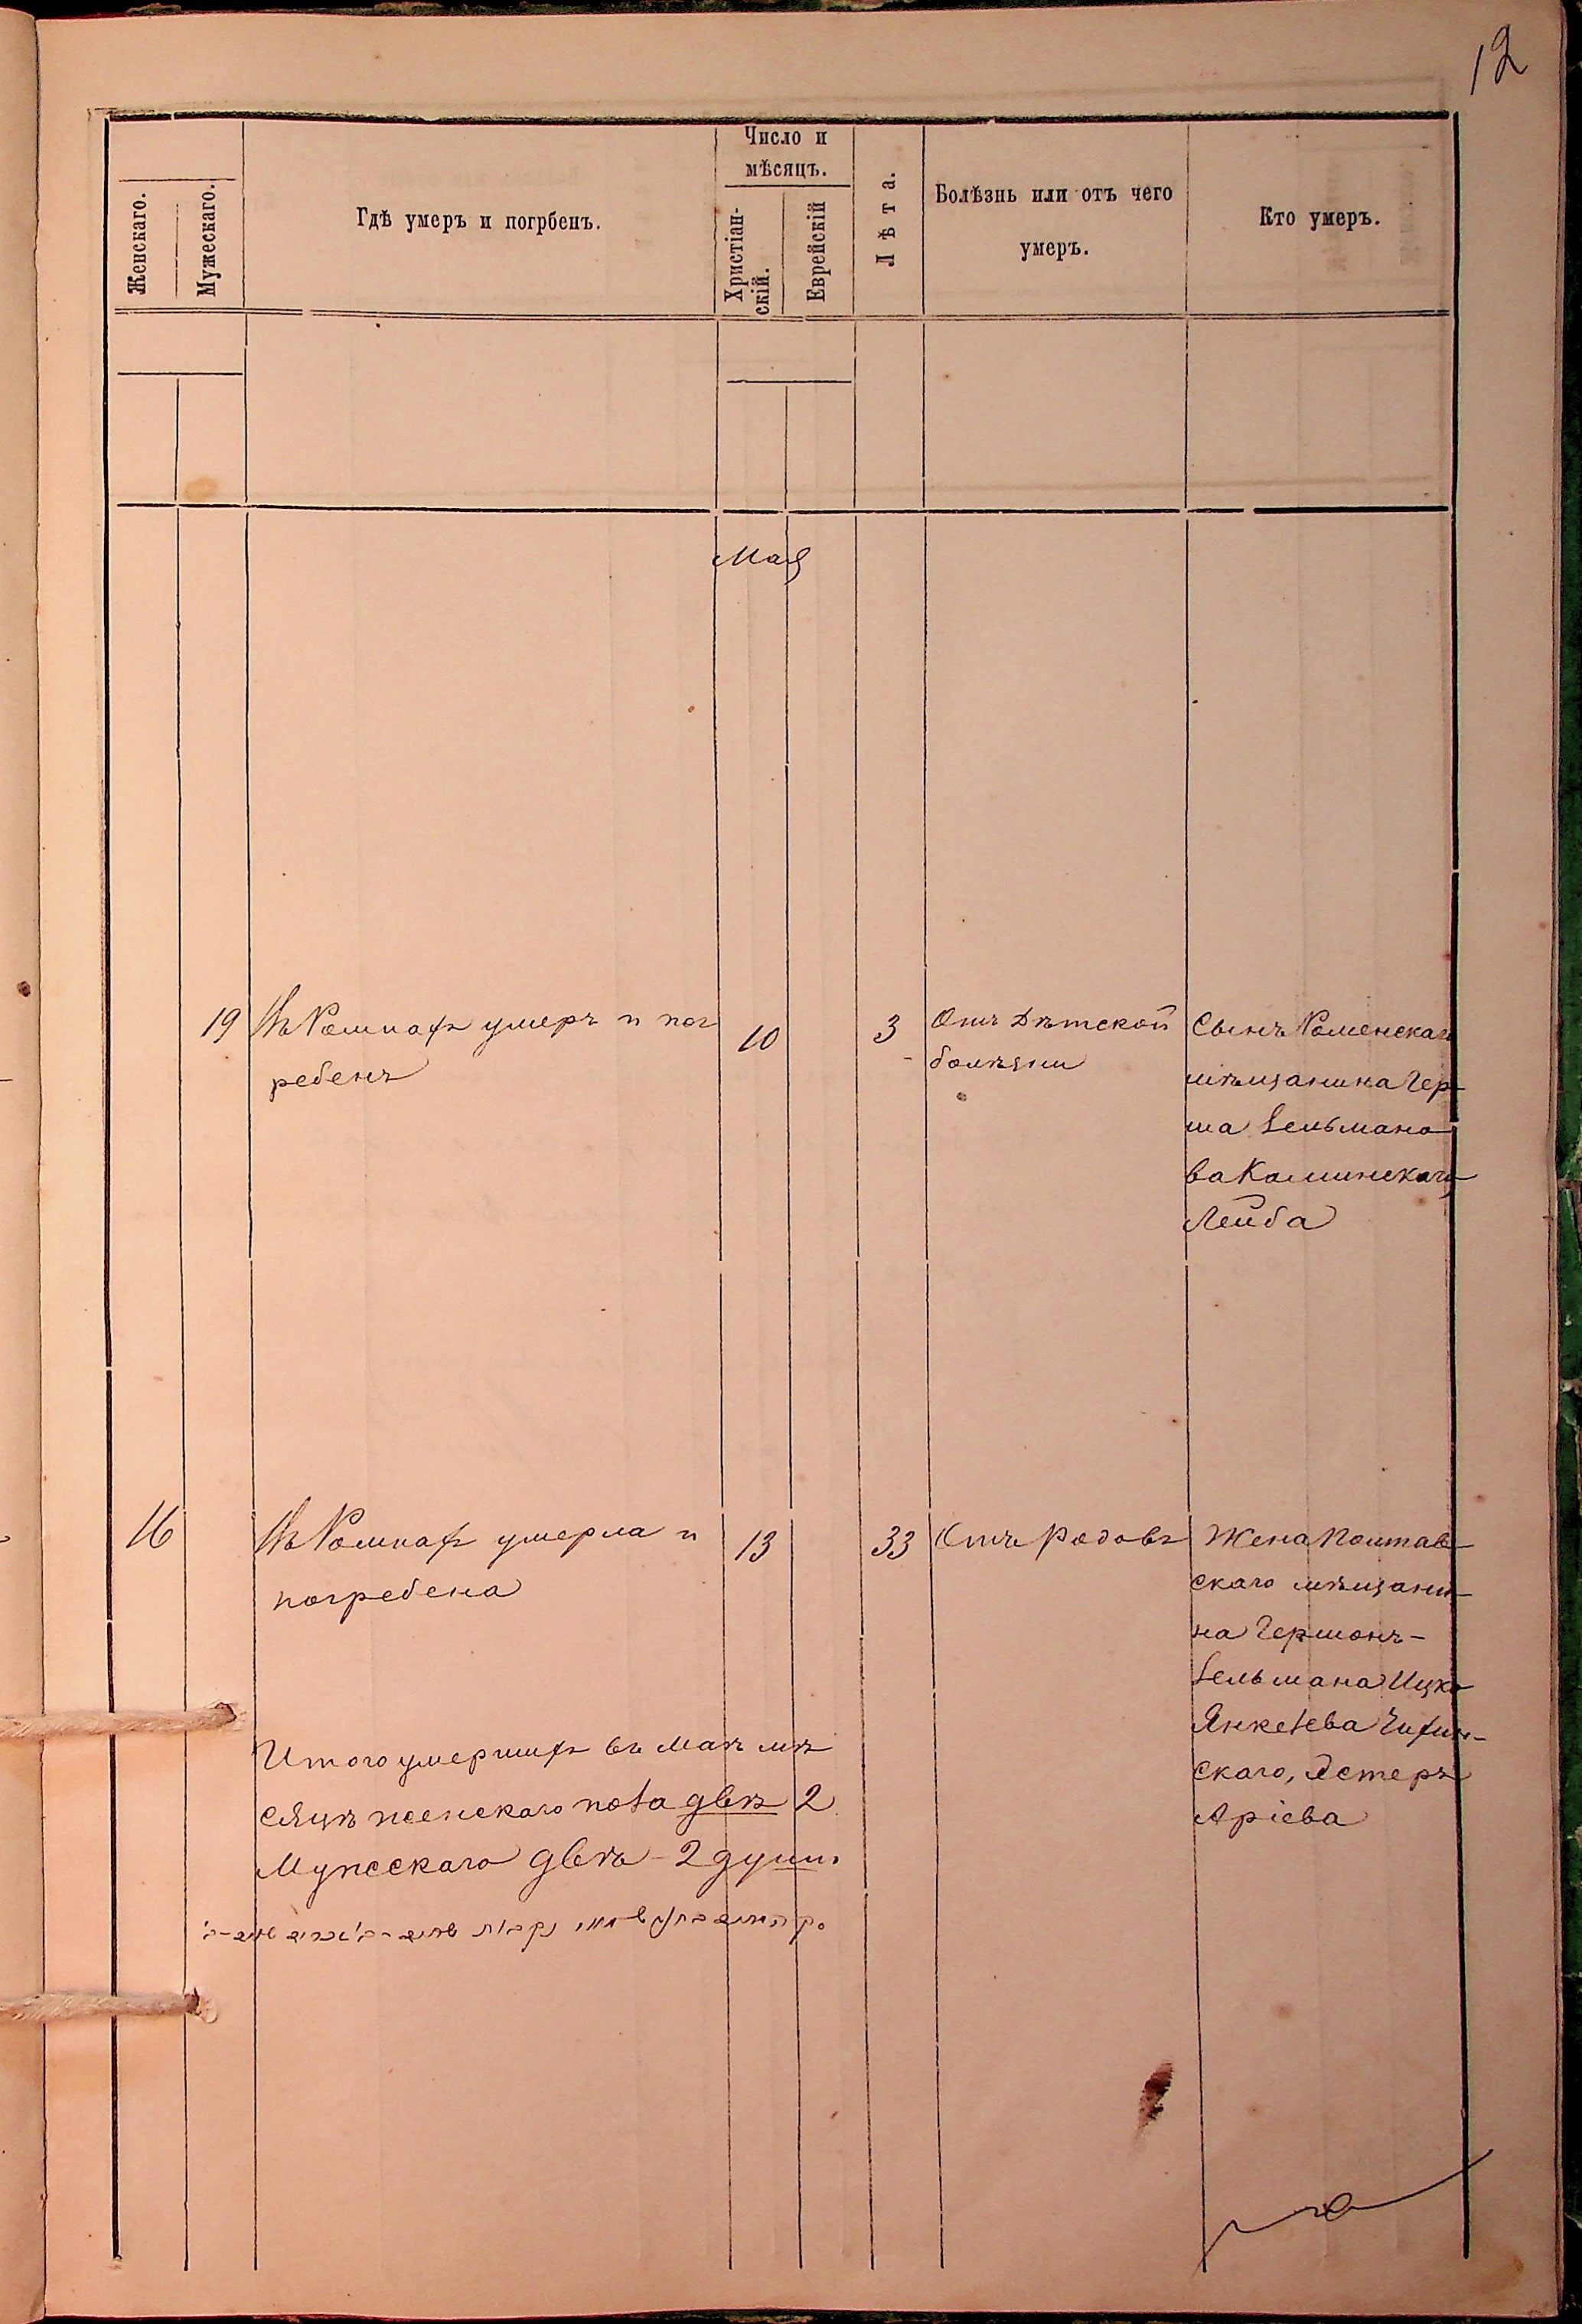 12
Женскаго.
Мужескаго.
Гдѣ умеръ и погрбенъ.
Число и
мѣсяцъ.
Христіан-
скій.
Еврейскій
Лѣта.
Болѣзнь или отъ чего
умеръ.
Кто умеръ.
Мая
19
Въ Ромнахъ умеръ и пог
ребенъ
10
3
Отъ Дѣтской
болѣзни
Сынъ Роменскаго
мѣщанина Гер
ша Зельмано
ва Каминскаго
Лейба
16
Въ Ромнахъ умерла и
погребена
13
33
Отъ Родовъ
Жена Полтав
скаго мѣщани
на Гершонъ-
Зельмана Ицко
Янкелева
скаго, Эстеръ
Аріева
Итого умершихъ въ Маѣ мѣ
сяцѣ женскаго пола двѣ 2
Мужескаго двѣ - 2 души